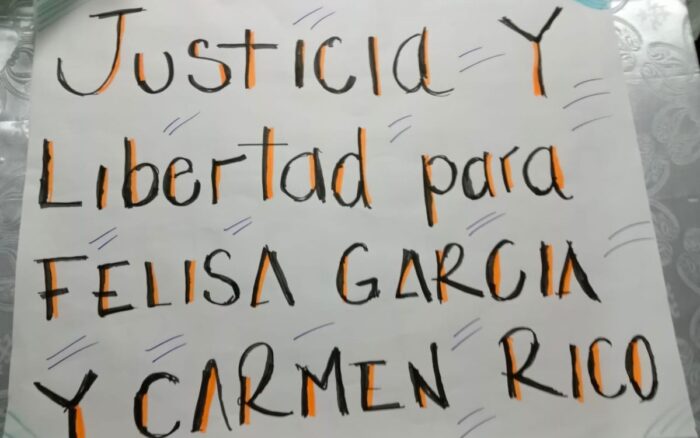 Justicia Y
Libertad para
FELISA GARCIA
Y CARMEN RICO